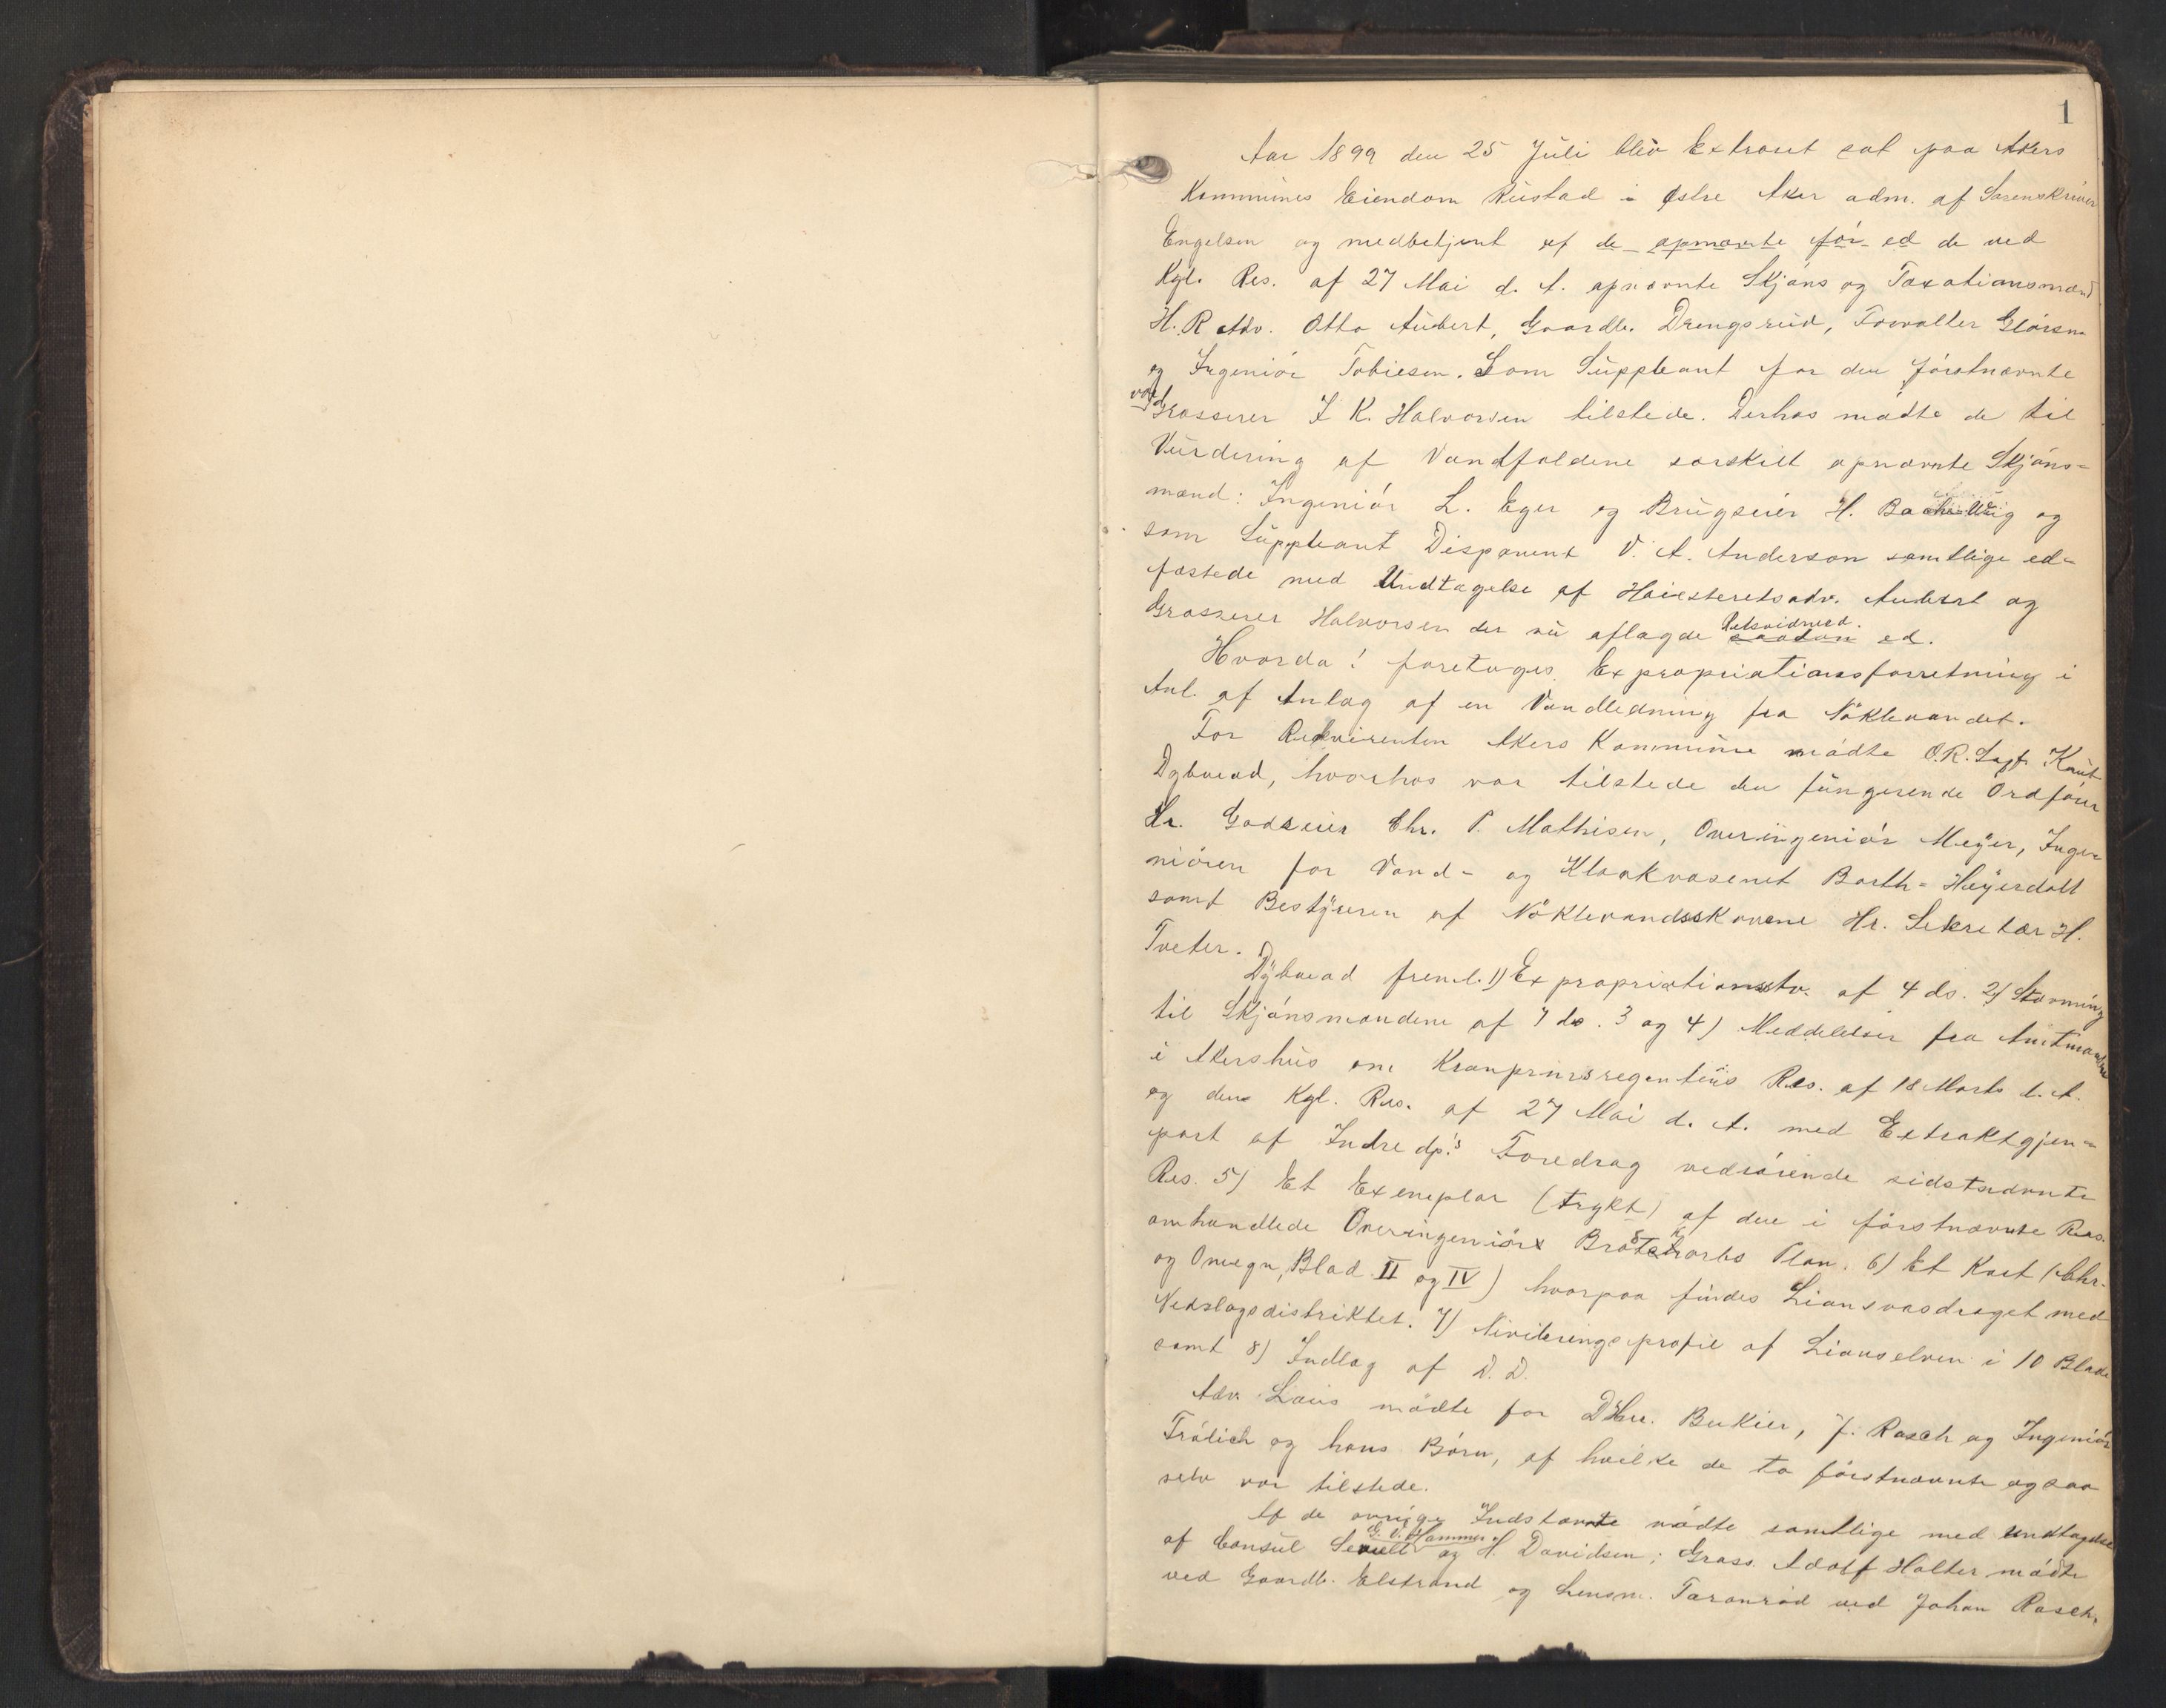 1
Aar 1899 den 25 Juli blev Extraret sat paa Akers
Kommunes Eiendom Rustad i Østre Aker adm. af Sorenskriver
Engelsen og medbetjent af de opnævnte før ed de ved
Kgl. Res. af 27 Mai d. A. opnævnte Skjøns og Taxationsmænd
H. R. Adv. Otto Aubert, Gaardbr. Drengsrud, Forvalter
og Ingeniør Tobiesen. Som Suppleant for den førstnævnte
var Grosserer J K. Halvorsen tilstede. Derhos mødte de til
Vurdering af Vandfaldene særskilt opnævnte Skjøns-
mænd: Ingeniør L. Eger og Brugseier H. Bache-Wiig og
som Suppleant Disponent V. A. Anderson samtlige ed-
fæstede med Undtagelse af Høiesteretsadv. Aubert og
Grosserer Halvorsen der nu aflagde saadan ed.
Hvorda! foretoges Expropriationsforretning i
Anl. af Anlæg af en Vandledning fra Nøklevandet.
For Rekvirenten Akers Kommune mødte O.R. Sagf. Knut
Dybwad, hvorhos var tilstede den fungerende Ordfører
Hr. Godseier Chr. P. Mathisen, Overingeniør Meyer, Inge-
niøren for Vand- og Kloakvæsenet Barth-Heyerdahl
samt Bestyreren af Nøklevandsskovene Hr. Sekretær H.
Tveter.
Dybwad freml. 1) Expropriationsstv. af 4 ds. 2) Stævning
til Skjønsmændene af 7 ds. 3 og 4) Meddelelser fra Amtmanden
i Akershus om Kronprinsregentens Res. af 18 Marts d. A.
og den Kgl. Res. af 27 Mai d. A. med Extraktgjen-
part af Indredp.'s Foredrag vedrørende sidstnævnte
Res. 5) Et Exemplar (trykt) af den i førstnævnte Res.
omhandlede Overingeniør Plan. 6) Et Kart (Chr.
og Omegn, Blad II og IV) hvorpaa findes Liansvasdraget med
Nedslagsdistriktet. 7) Nivileringsprofil af Lianselven i 10 Blade
samt 8) Indlæg af D. D.
Adv. mødte for DHrr. J. Rasch og Ingeniør
Frølich og hans Børn, af hvilke de to førstnævnte ogsaa
selv var tilstede.
Af de øvrige Indstævnte mødte samtlige med Undtagelse
af Consul G. V. Hammer og H. Davidsen; Gross. Adolf Halter mødte
ved Gaardb. Elstrand og Lensm. ved Johan Rasch.